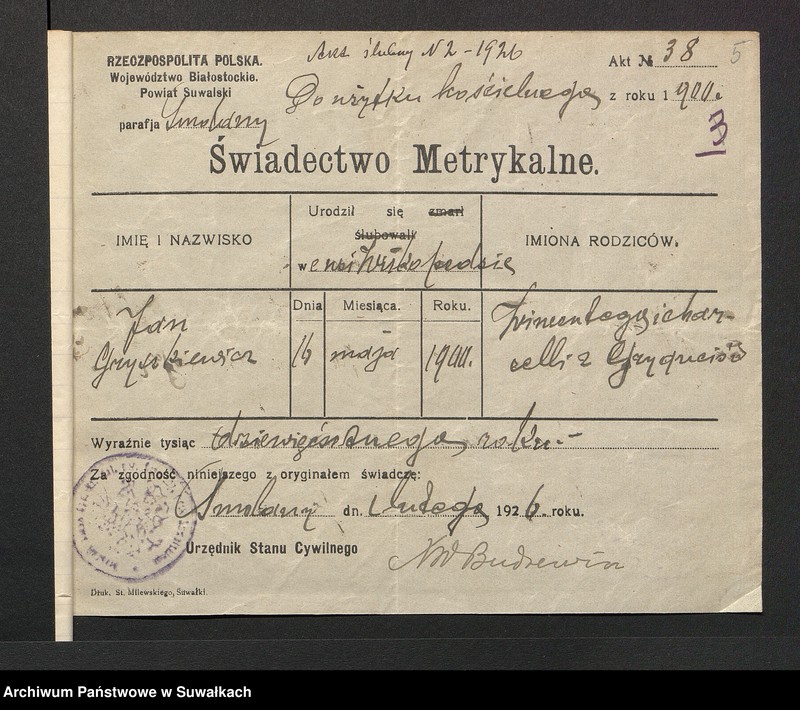 RZECZPOSPOLITA POLSKA.
Województwo Białostockie.
Powiat Suwalski
parafja Smolany
Akt ślubny N 2 - 1926
Do użytku kościelnego
Akt № 38
5
z roku 1900.
3
Świadectwo Metrykalne.
IMIĘ I NAZWISKO
Urodził się zmarł
ślubowali
w
IMIONA RODZICÓW.
Dnia
Miesiąca.
Roku.
Jan
16
maja
1900.
Wincentego i
z
Wyraźnie tysiąc dziewięćsetnego roku.-
Za zgodność niniejszego z oryginałem świadczę:
Smolany dn. 1 lutego 1926 roku.
Urzędnik Stanu Cywilnego
Druk. St. Milewskiego, Suwałki.
Archiwum Państwowe w Suwałkach